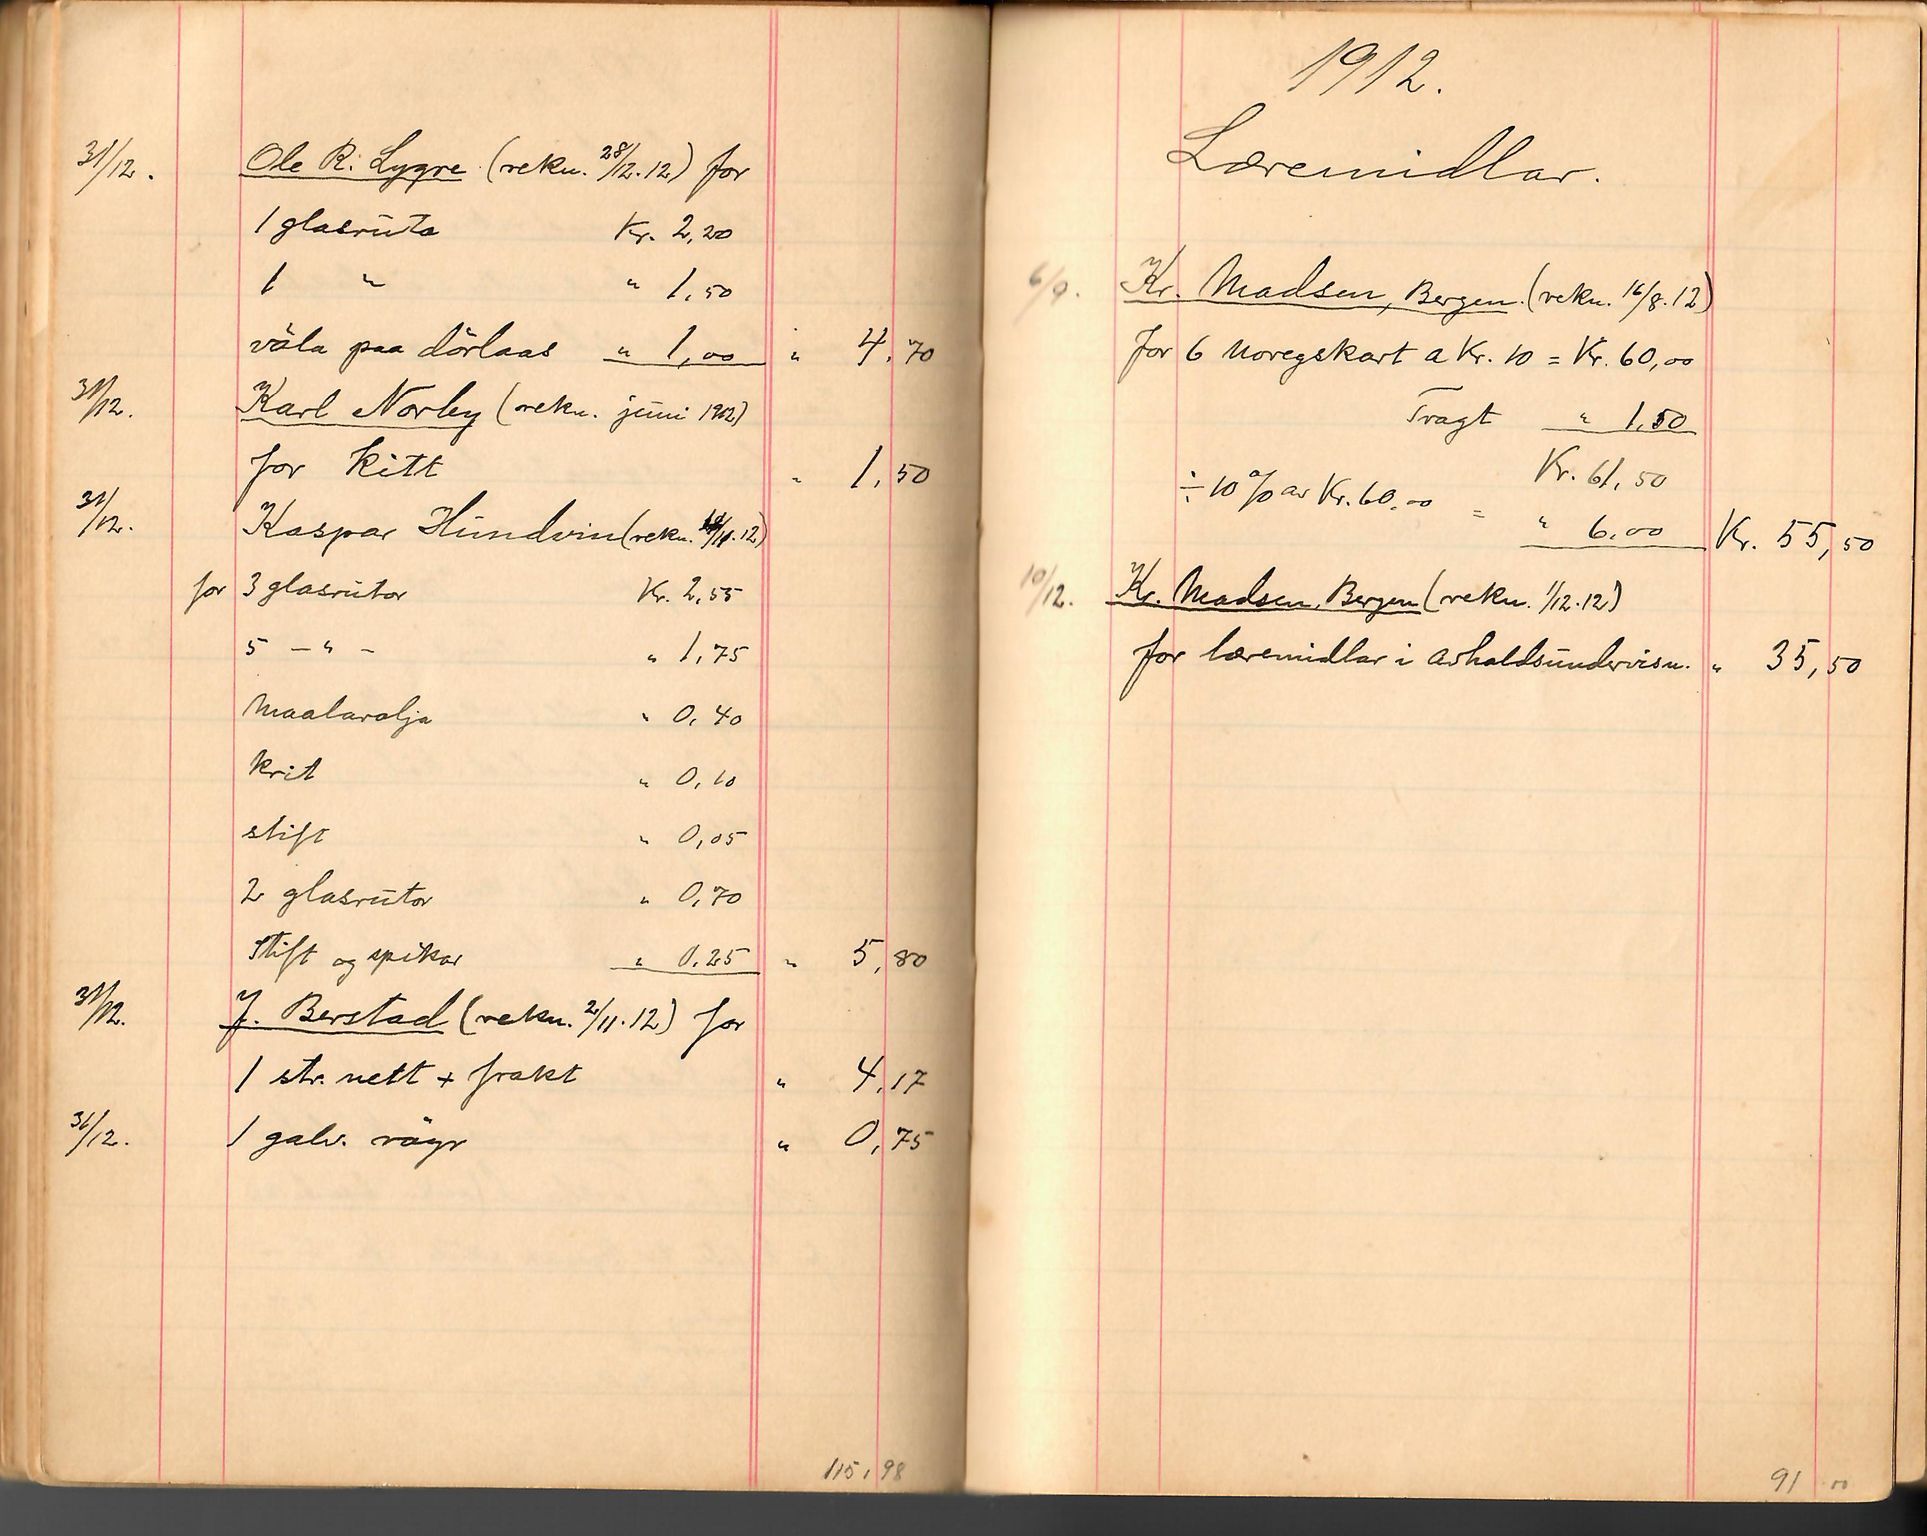 31/12. Ole R. Lygre (rekn. 28/12.12) for
1 glasruta Kr. 2,20
1 " " 1,50
väla paa dörlaas " 1,00 " 4,70
31/12. Karl Norley (rekn. juni 1912)
for kitt " 1,50
31/12. Kaspar Hundvin (rekn. /11.12)
for 3 glasrutor Kr. 2,55
5 - " - " 1,75
Maalarolja " 0,40
krit " 0,10
stift " 0,05
2 glasrutor " 0,70
Stift og spikar " 0.25 " 5,80
31/12. J. Berstad (rekn. 2/11.12) for
1 str. nett + frakt " 4,17
31/12. 1 galv. röyr " 0,75
115,98
1912.
Læremidlar.
6/9. Kr. Madsen, Bergen. (rekn. 16/8.12)
for 6 Noregskart a Kr. 10 = Kr. 60,00
Fragt " 1,50
Kr. 61,50
÷ 10% av Kr. 60,00 = " 6,00 Kr. 55,50
10/12. Kr. Madsen, Bergen (rekn. 1/12.12)
for læremidlar i avholdsundervisn. " 35,50
91 00